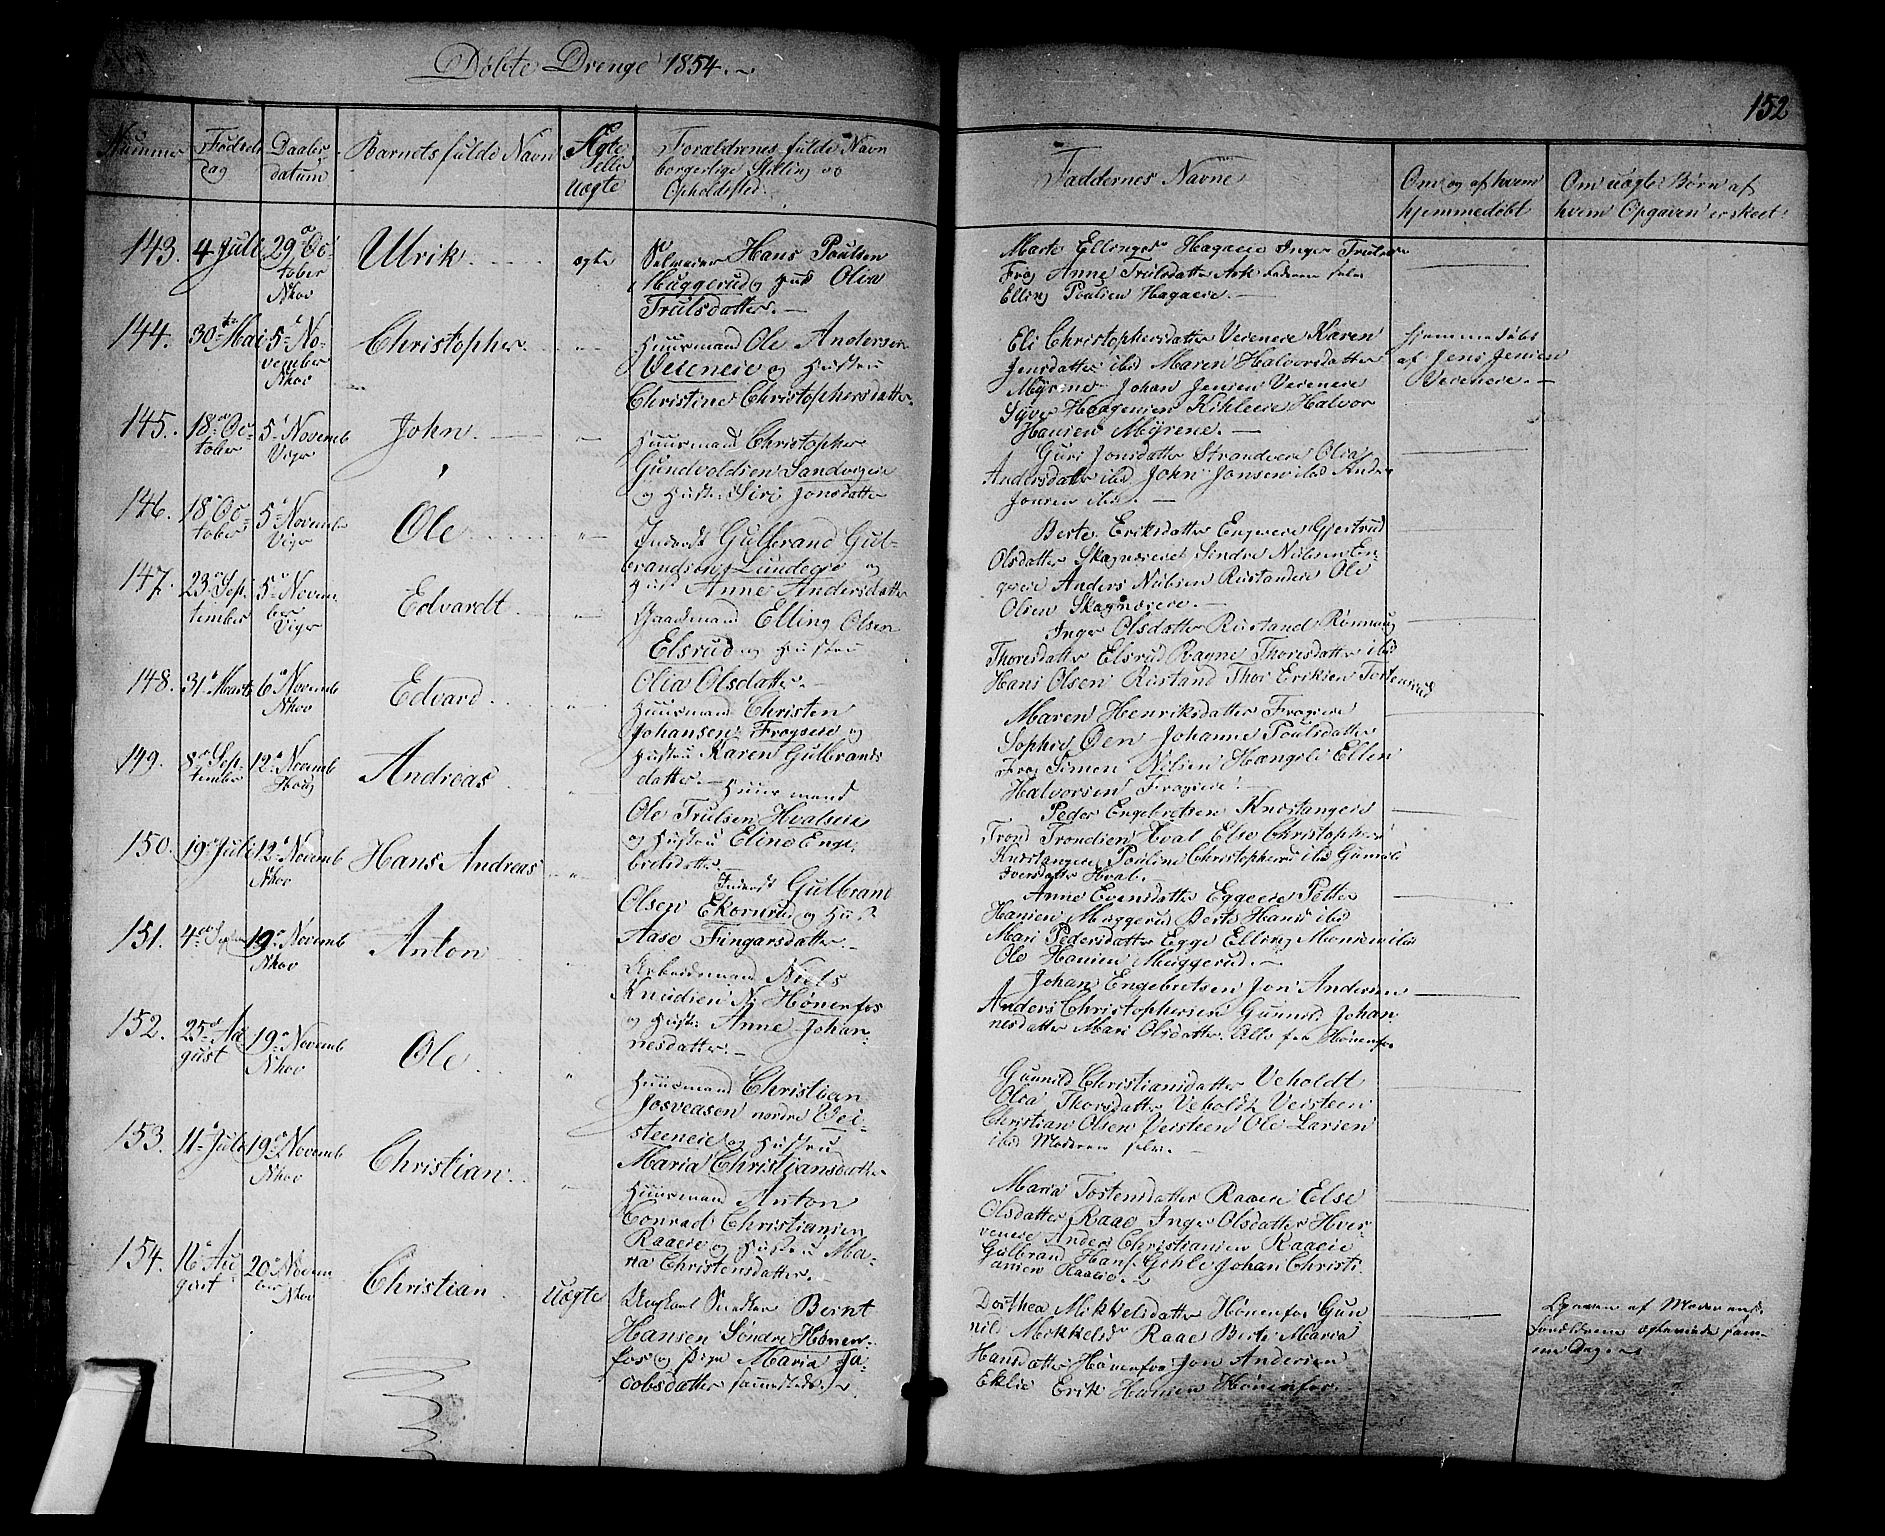 Døbte Drenge 1854.
152
Nummer
Fødsels
dag
Daabs
datum
Barnets fulde Navn
Ægte
eller
Uægte
Forældrenes fulde Navn
borgerlige Stilling og
Opholdsted.
Faddernes Navne
Om og af hvem
hjemmedøbt
Om uægte Børn af
hvem Opgaven er skeet.
143. 4 Juli 29 Oc-
tober
Nhov
Ulrik
ægte
Selveier Hans Poulsen
Muggerud og Hust Olia
Trulsdatter.
Hagaeie Inger
Frog Anne Trulsdatter Ask Faderen selv
Elling Poulsen Hagaeie.
144. 30 Mai 5 No-
vember
Nhov
Christopher
Huusmand Ole Andersen
Veieneie og Hustru
Christine Christophersdatter
Eli Christophersdatter Veieneie Karen
Jensdatter ibid Maren Halvorsdatter
Myrene Johan Jensen Veieneie
Halvor
Hansen Myrene.
hjemmedøbt
af Jens Jensen
Veieneie.
145. 18 Oc-
tober
5 Novemb
Viger
John
Huusmand Christopher
Gundvoldsen Sandvigeie
og Hustr Siri Jonsdatter
Guri Jonsdatter Strandeie Olia
Andersdatter ibid John Jonsen ibid Andr
Jonsen ibid.
146. 18 Oc-
tober
5 November
Viger
Ole
Inderst Gulbrand Gul-
brandsen Lundeeie og
Hust Anne Andersdatter
Berte Eriksdatter Engeeie Gjertrud
Olsdatter Skagnæseie Søndre Nielsen En-
geeie Anders Nielsen Rustandeie Ole
Olsen Skagnæseie.
147. 23 Sep-
tember
5 Novem-
ber
Viger
Edvardt
Gaardmand Elling Olsen
Elsrud og Hustru
Olia Olsdatter.
Inger Olsdatter Rustand Rønnaug
Thoresdatter Elsrud Ragne Thoresdatter ibid
Hans Olsen Rustand Thor Eriksen
148. 31 Marts 6 Novemb
Nhov
Edvard
Huusmand Christen
Johansen Frogseie og
Hustru Karen Gulbrands
datter.
Maren Henriksdatter Frogseie
Sophie Øen Johanne Poulsdatter
Frog Simon Nilsen Hængsle Ellen
Halvorsen Frogseie.
149. 8 Sep-
tember
12 Novemb
Houg
Andreas
Huusmand
Ole Trulsen Hvalseie
og Hustru Eline Enge-
bretsdatter
Peder Engebretsen Knestangeie
Trond Trondsen Hval Else Christophers
Knestangeie Pouline Christophersd ibid Gunild
Iversdatter Hval.
150. 19 Juli 12 Novemb
Nhov
Hans Andreas
Inderst Gulbrand
Olsen Ekornrud og Hust
Aase Fingarsdatter.
Anne Evensdatter Eggeeie Petter
Hansen Muggerud Berte Hansd ibid
Mari Pedersdatter Egge Elling Monsen ibid
Ole Hansen Muggerud.
151. 4 19 Novemb
Nhov
Anton
Arbeidsmand Niels
Knudsen N Hønenfos
og Hustr Anne Johan-
nesdatter.
Johan Engebretsen Jon Andersen
Anders Christophersen Gunnild Johan-
nesdatter Mari Olsdatter. Alle fra Hønenfos
152. 25 Au
gust
19 Novemb
Nhov
Ole
Huusmand Christian
Josveasen nordre Vei-
steeneie og Hustru
Maria Christiansdatter
Gunnild Christiansdatter Veholdt
Olia Thorsdatter Veholdt Veisteen
Christian Olsen Veisteen Ole Larsen
ibid Moderen selv.
153. 11 Juli 19 Novemb
Nhov
Christian
Huusmand Anton
Conrad Christiansen
Raaeie og Hustru Ma-
ria Christensdatter.
Maria Tostensdatter Raaeie Else
Olsdatter Raae Inger Olsdatter Hver-
veneie Anders Christiansen Raaeie
Gulbrand Hans Gihle Johan Christi-
ansen Raaeie.
154. 16 Au-
gust
20 Novem
ber Nhov
Christian
Uægte
Ungkarl Snedker Bernt
Hansen Søndre Hønen-
fos og Pige Maria Ja-
cobsdatter sammesteds.
Dorthea Mikkelsdatter Hønenfos Gun-
nild Mikkelsd Raae Berte Maria
Hansdatter Hønenfos Jon Andersen
Eklie Erik Hansen Hønenfos.
Opgaven af Moderen
Forældrene